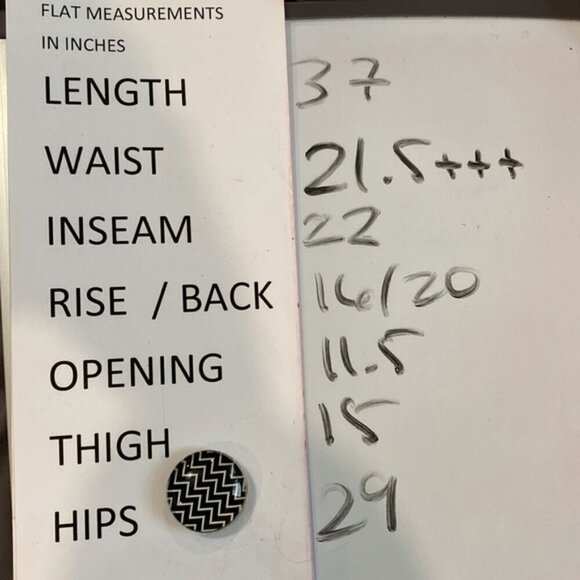 FLAT MEASUREMENTS
IN INCHES
LENGTH 37
WAIST 21.5+++
INSEAM 22
RISE / BACK 16/20
OPENING 11.5
THIGH 15
HIPS 29